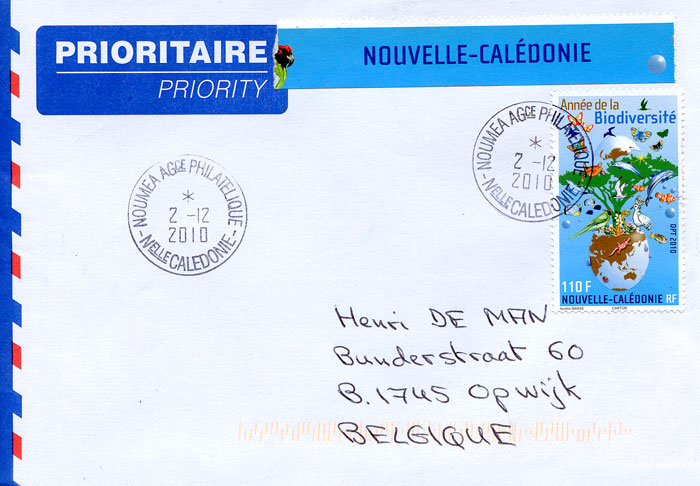 PRIORITAIRE
PRIORITY
NOUVELLE-CALÉDONIE
Année de la
Biodiversité
OPT 2010
110 F
NOUVELLE-CALÉDONIE RF
CARTOR
NOUMEA AGCE PHILATELIQUE
*
2 -12
2010
- NELLE CALEDONIE -
NOUMEA AGCE PHILATELIQUE
*
2 -12
2010
- NELLE CALEDONIE -
Henri DE MAN
Bunderstraat 60
B.1745 Opwijk
BELGIQUE